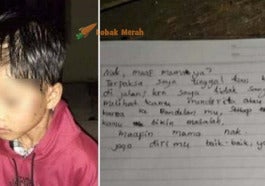 Lobak Merah
Nak, maaf mama ya?
Terpaksa saya tinggal kau
di jalan, krn saya tidak
melihat kamu menderita
karna ke Bandelan mu, setiap
kau bikin masalah.
maafin mama nak
jaga diri mu baik-baik, ya